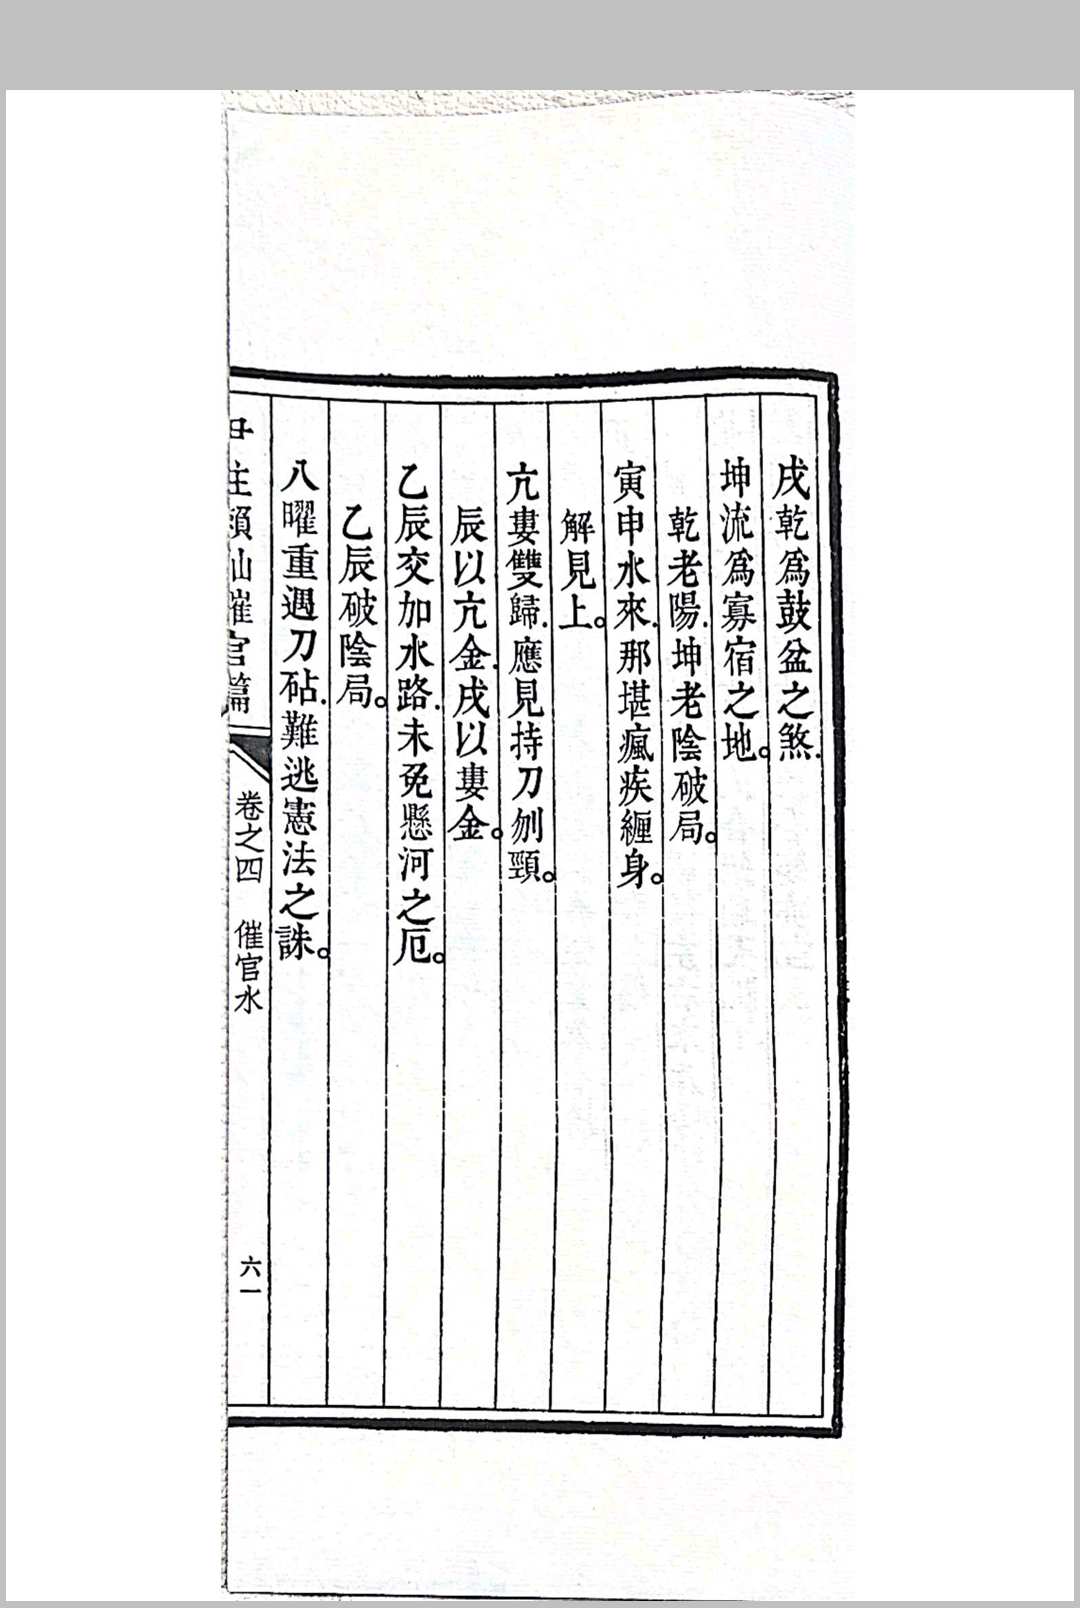 戌乾爲鼓盆之煞.
坤流爲寡宿之地。
乾老陽.坤老陰破局。
寅申水來.那堪瘋疾纏身。
解見上。
亢婁雙歸.應見持刀刎頸。
辰以亢金.戌以婁金。
乙辰交加水路.未免懸河之厄。
乙辰破陰局。
八曜重遇刀砧.難逃憲法之誅。
註賴仙催官篇
卷之四 催官水
六一